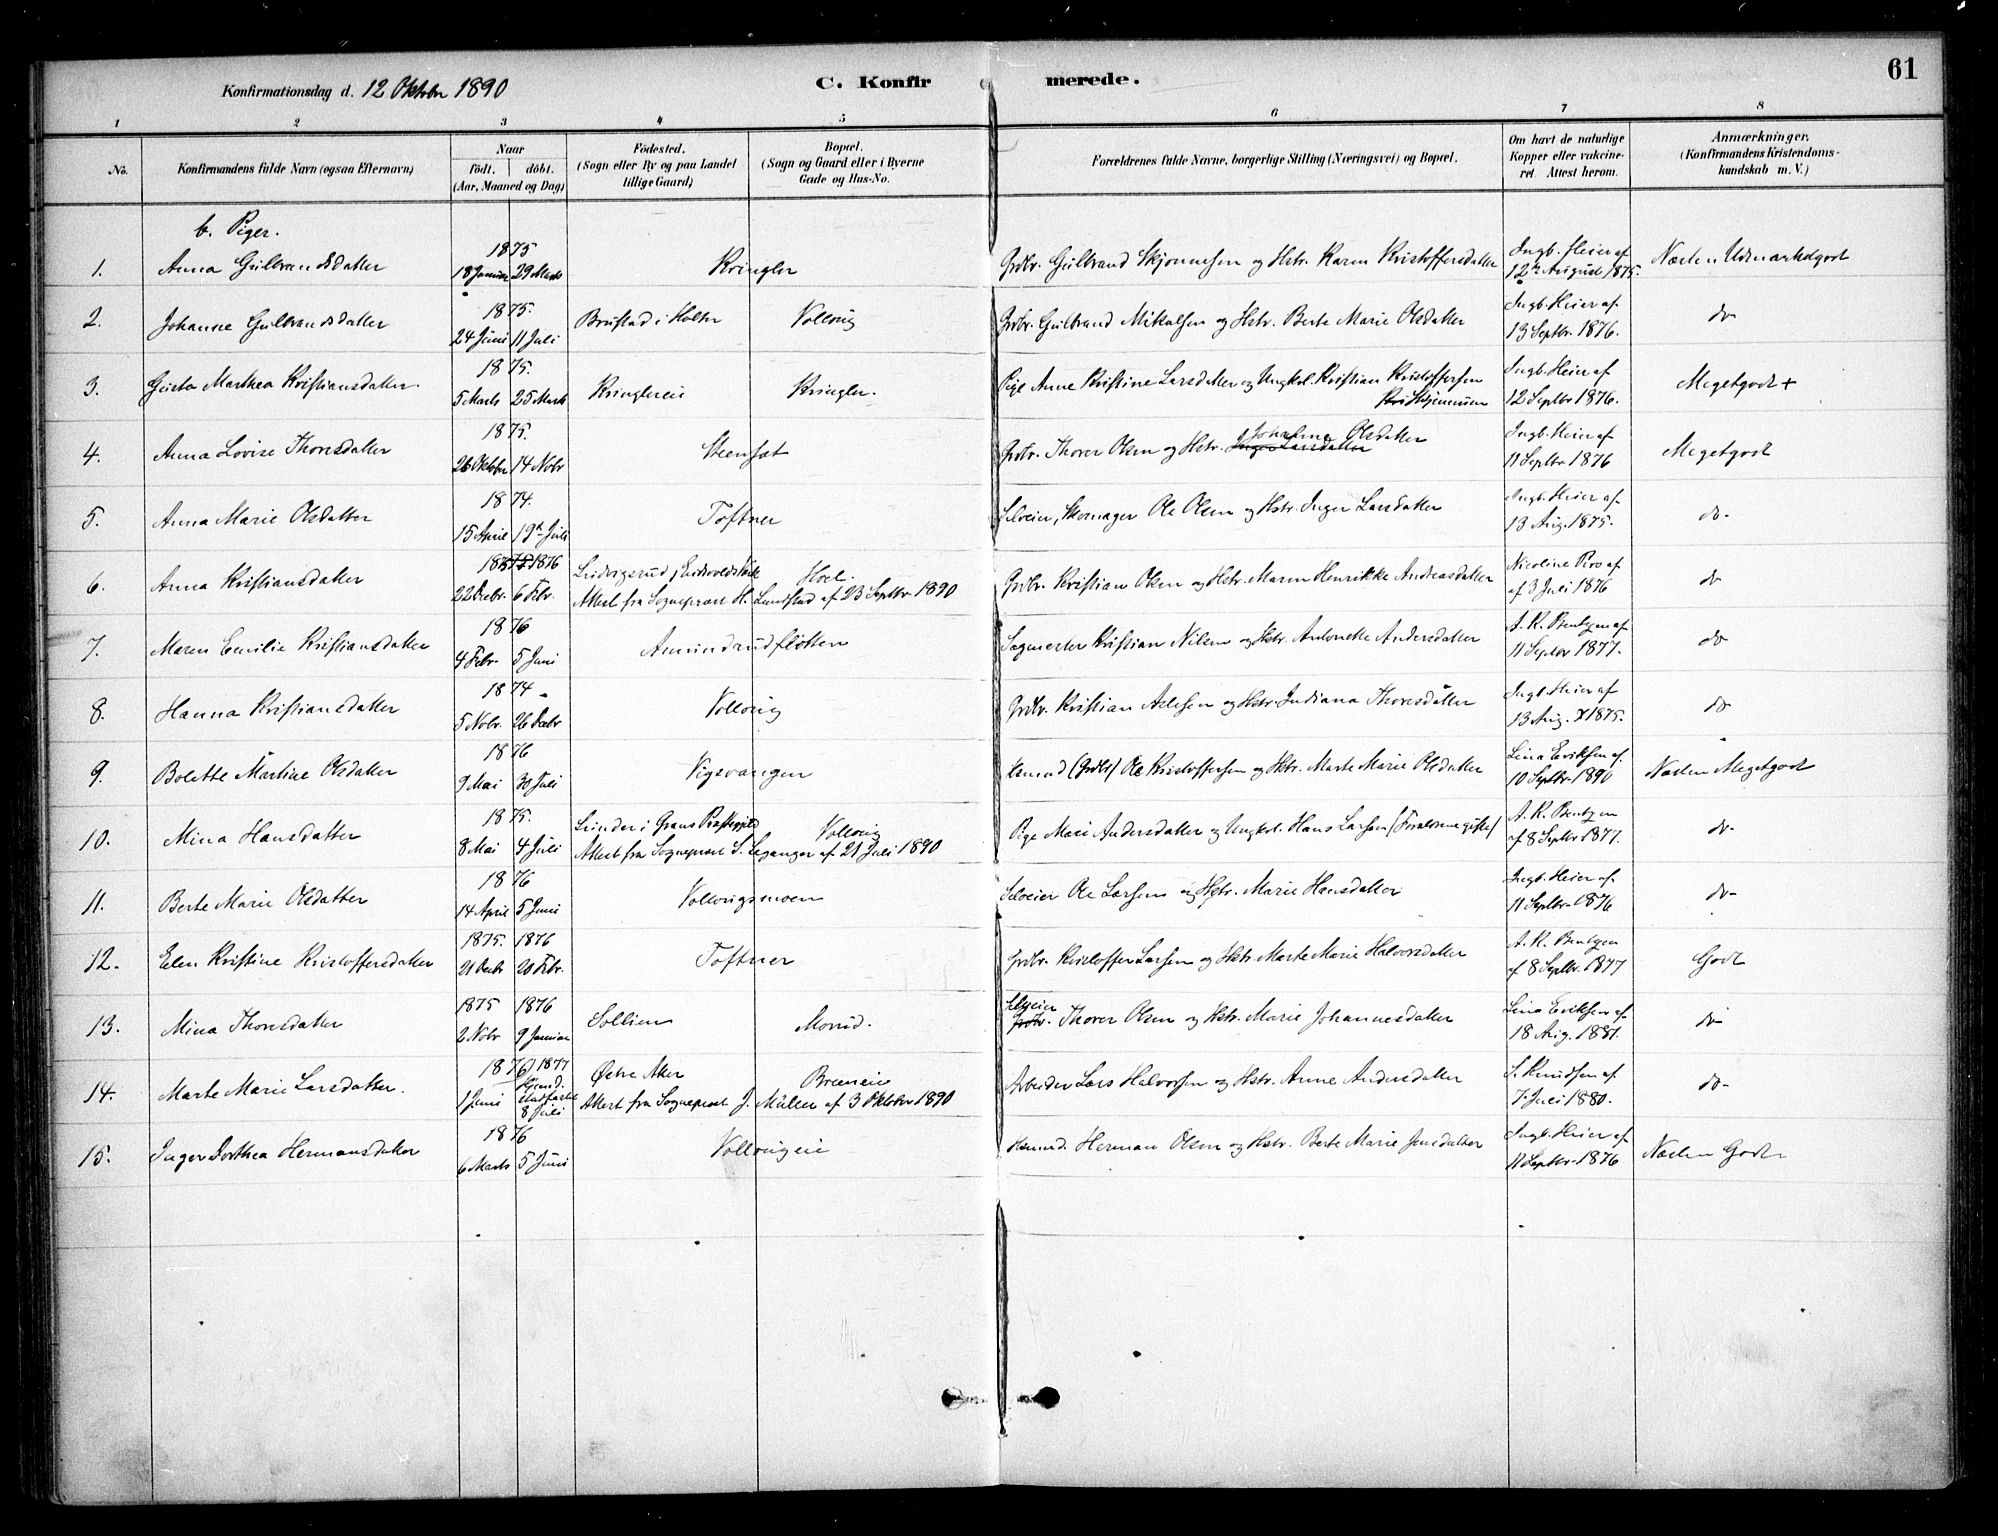 61
Konfirmationsdag d. 12 Oktober 1890
C. Konfirmerede.
1 2 3 4 5 6 7 8
No.
Konfirmandens fulde Navn (ogsaa Efternavn)
Naar
födt. döbt.
(Aar, Maaned og Dag)
Födested.
(Sogn eller By og paa Landet
tillige Gaard)
Bopæl.
(Sogn og Gaard eller i Byerne
Gade og Hus-No.
Forældrenes fulde Navne, borgerlige Stilling (Næringsvei) og Bopæl.
Om havt de naturlige
Kopper eller vakcine-
ret. Attest herom.
Anmærkninger.
(Konfirmandens Kristendoms-
kundskab m. V.)
b. Piger.
1. Anna Gulbrandsdatter 1875 18 Januar 29 Marts Kringler Grdbr. Gulbrand Skjønnesen og Hstr. Karen Kristoffersdatter Ingb. Heier af 12te August 1875. Næsten Udmærketgodt
2. Johanne Gulbrandsdatter 1875. 24 Juni 11 Juli Brustad i Holter Vollaug Grdbr. Gulbrand Mikalsen og Hstr. Berte Marie Olsdatter Ingb. Heier af 13 Septbr. 1876. do
3. Gusta Marthea Kristiansdatter. 1875. 5 Marts 25 Marts Kringlereie Kringler. Pige Anne Kristine Larsdatter og Ungkl. Kristian Kristoffersen Skjennum Ingb. Heier af 12 Septbr 1876. Megetgodt +
4. Anna Lovise Thoresdatter 1875. 26 Oktober 14 Nobr Steensat Grdbr. Thorer Olsen og Hstr. Inger Larsdatter Johanna Olsdatter Ingb. Heier af 11 Septbr 1876 Megetgodt
5. Anna Marie Olsdatter 1874. 15 April 19de Juli Toftner Selveier, Skomager Ole Olsen og Hstr. Inger Larsdatter Ingb. Heier af 13 Aug. 1875. do
6. Anna Kristiansdatter 1875 1876 22 Decbr. 6 Febr. Ludvigsrud, Eidsvold Hoel. Grdbr. Kristian Olsen og Hstr. Maren Henrikke Andreasdatter Nicoline Roos af 3 Juli 1876 do
Attest fra Sogneprest H. Lundstad af 23 Septbr 1890
7. Maren Emilie Kristiansdatter 1876 4 Febr. 5 Juni Amundrudfløtten Sagmester Kristian Nilsen og Hstr. Antonette Andersdatter A. K. Bentzen af 11 Septbr 1877. do
8. Hanna Kristiansdatter 1874 5 Nobr. 26 Decbr Vollaug Grdbr. Kristian Axlesen og Hstr. Indiana Thoresdatter Ingb. Heier af 13 Aug. 1875. do
9. Bolette Martine Olsdatter 1876 9 Mai 30 Juli Vigsvangen Husmand (Grdbr) Ole Kristoffersen og Hstr. Marte Marie Olsdatter Lina Eriksen af 10 Septbr. 1890 Næsten Megetgodt
10. Mina Hansdatter 1875. 8 Mai 4 Juli Lunder i Grans Præstegjeld Vollaug Pige Mari Andersdatter og Ungkl. Hans Larsen (Forældrene gifte) A. K. Bentzen af 8 Septbr 1877. do
Attest fra Sogneprest S. Leganger af 21 Juli 1890
11. Berte Marie Olsdatter 1876 14 April 5 Juni Vollaugsmoen Selveier Ole Larsen og Hstr. Marie Hansdatter Ingb. Heier af 11 Septbr. 1876 do
12. Elen Kristine Kristoffersdatter 1875. 1876 21 Decbr 20 Febr. Toftner Grdbr. Kristoffer Larsen og Hstr. Marte Marie Halvorsdatter A. K. Bentzen af 8 Septbr. 1877 Godt
13. Mina Thoresdatter 1875 1876 2 Nobr 9 Januar Sollien Morud. Selveier Grdbr. Thorer Olsen og Hstr. Marie Johannesdatter Lina Eriksen af 18 Aug. 1881. do
14. Marte Marie Larsdatter. 1876 1877 1 Juni Hjemd. stadfæstet 8 Juli Østre Aker Breeneie Arbeider Lars Halvorsen og Hstr. Anne Andersdatter S. Knudsen af 7. Juli 1880. do
Attest fra Sogneprest J. Müller af 3 Oktober 1890
15. Inger Dorthea Hermansdatter 1876 6 Marts 5 Juni Vollaugeie Husmd. Herman Olsen og Hstr. Berte Marie Jensdatter Ingb. Heier af 11 Septbr. 1876 Næsten Godt